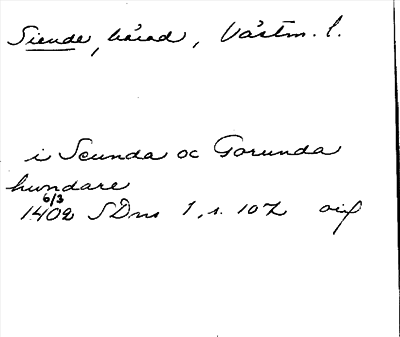 Siende, härad, Västm. l.
i Scunda oc Gorunda
hundare
6/3
1402 SDns 1, s. 107 oif